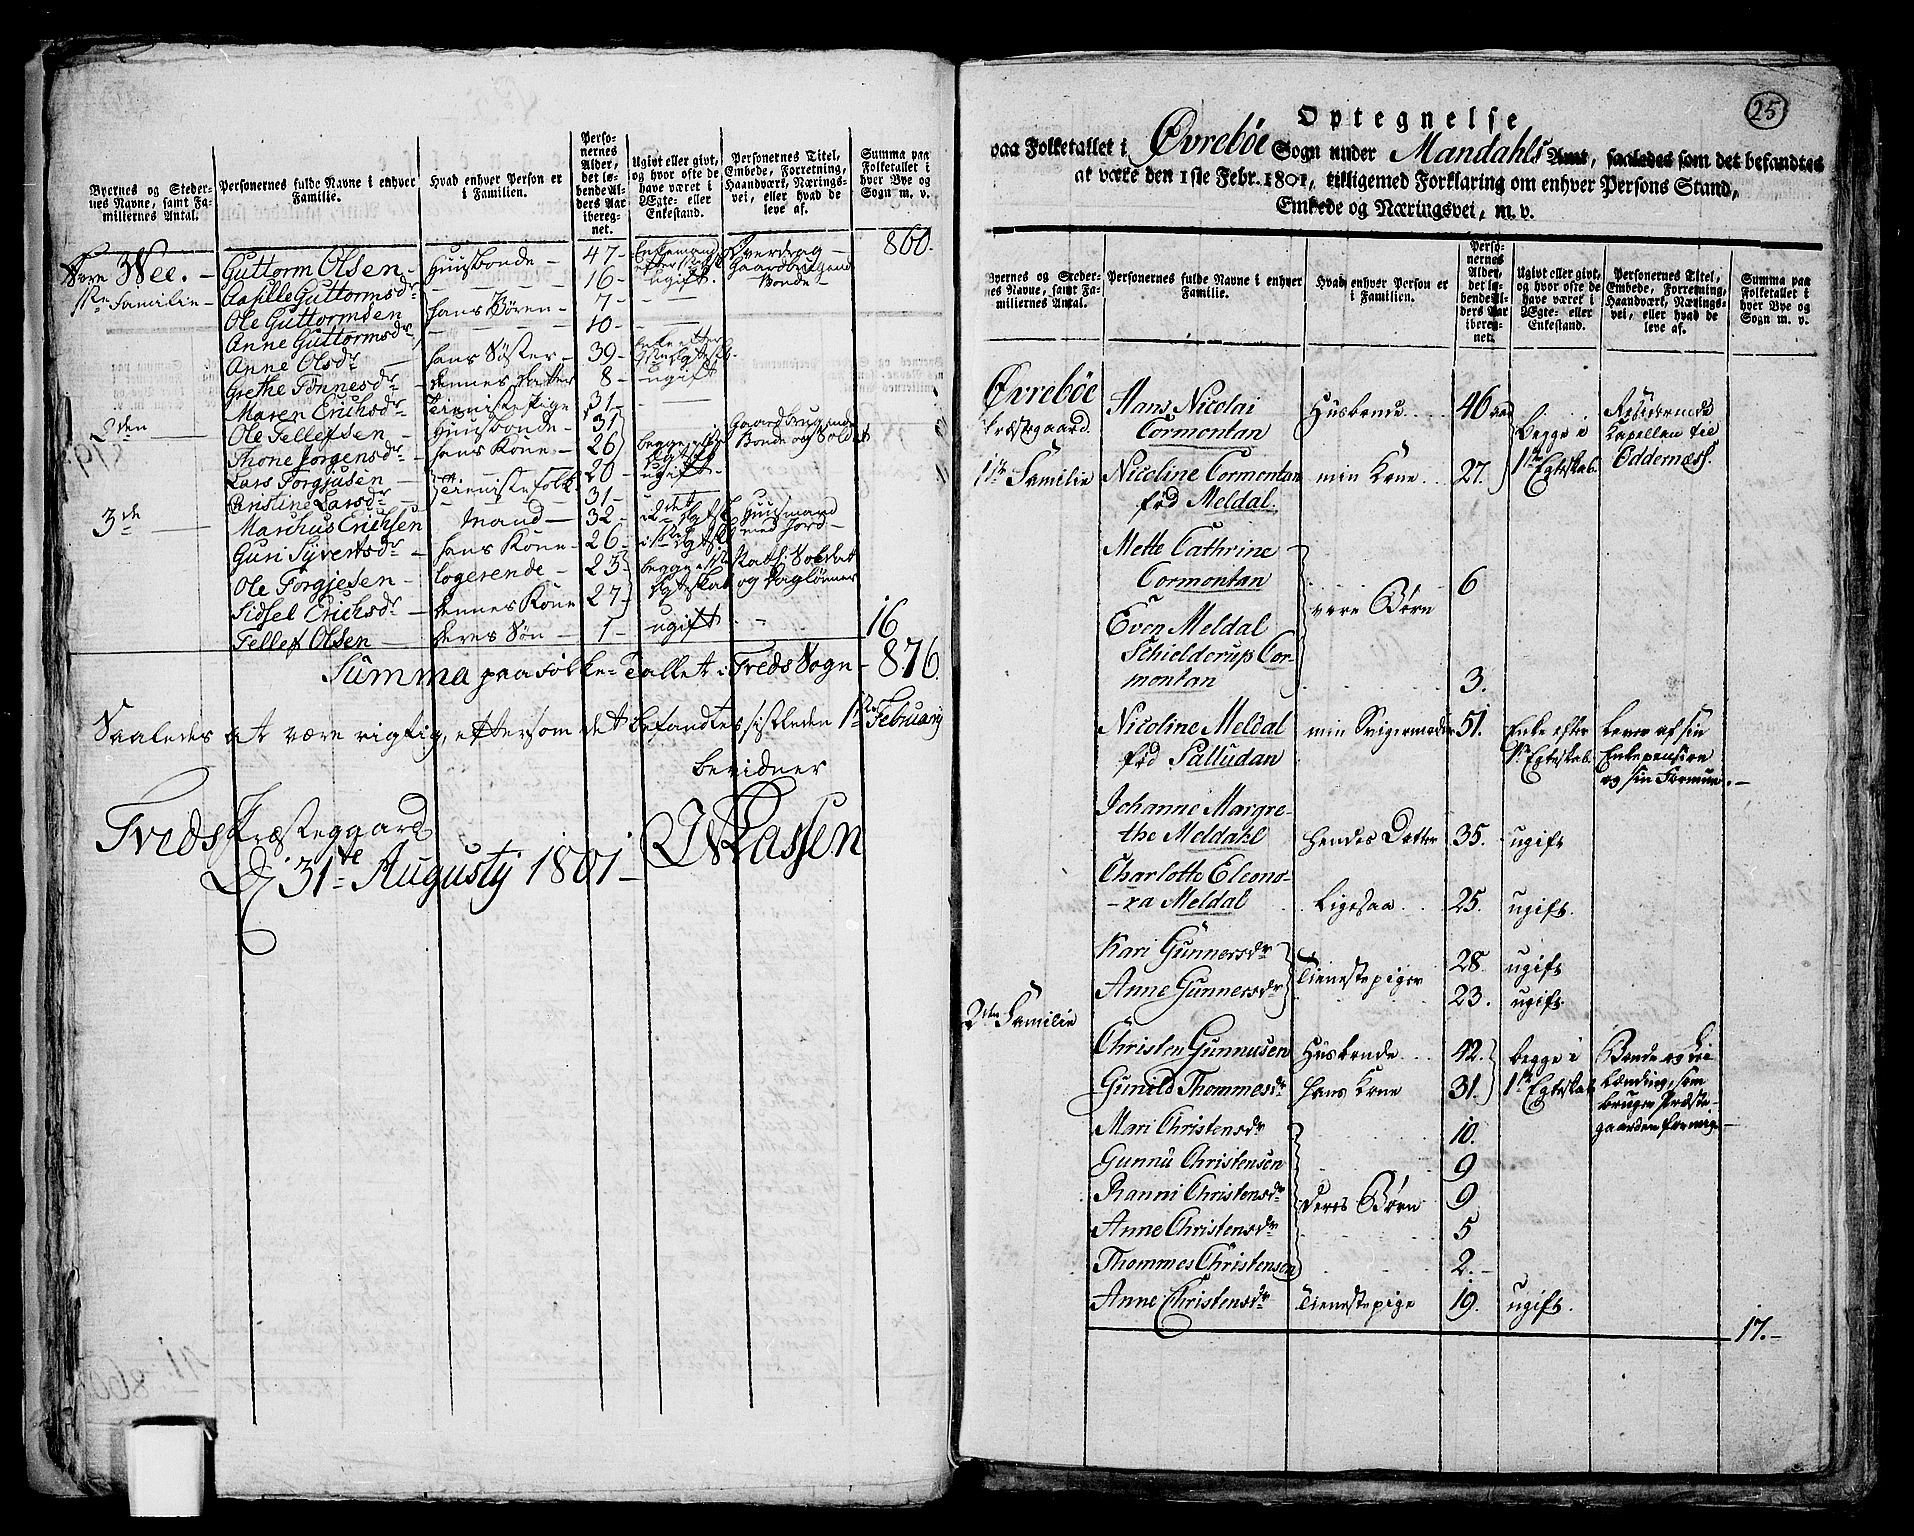 Byernes og Steder-
nes Navne, samt Fa-
miliernes Antal.
Personernes fulde Navne i enhver
Familie.
Hvad enhver Person er
i Familien.
Perso-
nernes
Alder,
det lø-
bende Al-
ders Aar
ibereg-
net.
Ugivt eller givt,
og hvor ofte de
have været i
Ægte- eller
Enkestand.
Personernes Titel,
Embede, Forretning,
Haandværk, Nærings-
vei, eller hvad de
leve af.
Summa paa
Folketallet i
hver Bye og
Sogn m. v.
860.
1ste Familie
Guttorm Olsen Huusbonde 47
Gaardbrugende Bonde
Aasille Guttormsdr 16 ugift
Ole Guttormsen hans Børen 7
Anne Guttormsdr 10
Anne Olsdr hans Søster 39
Grethe Tønnesdr dennes datter 8 ugift
Maren Erichsdr Tienniste Pige 31
2den Ole Tellefsen Huusbonde 31 Gaardbrugende Bonde og Soldat
Thone Jørgensdr hans Kone 26
Lars Torgjusen Tiennistefolk 20 ugift
Christine Larsdr 31
3de Marchus Erichsen Mand 32 Huusmand med Jord
Guri Syvertsdr hans Kone 26
Ole Torgjesen logerende 23 og Daglønner
Sidsel Erichsdr dennes Kone 27
Tellef Olsen deres Søn 1 ugift 16
Summa paa folke-Tallet i Treds Sogn 876.
Saaledes at være rigtig, efftersom det befandtes sistleden 1ste Februarij
bevidner
Treds Præsteggaard
31te Augustij 1801
25
Optegnelse
paa Folketallet i Øvrebøe Sogn under Mandahls Amt, saaledes som det befandtes
at være den 1ste Febr. 1801, tilligemed Forklaring om enhver Persons Stand,
Embede og Næringsvei, m. v.
Byernes og Steder-
nes Navne, samt Fa-
miliernes Antal.
Personernes fulde Navne i enhver
Familie.
Hvad enhver Person er
i Familien.
Perso-
nernes
Alder,
det lø-
bende Al-
ders Aar
ibereg-
net.
Ugivt eller givt,
og hvor ofte de
have været i
Ægte- eller
Enkestand.
Personernes Titel,
Embede, Forretning,
Haandværk, Nærings-
vei, eller hvad de
leve af.
Summa paa
Folketallet i
hver Bye og
Sogn m. v.
Øvrebøe
Præstegaard.
1ste Familie
Hans Nicolai
Cormontan
Husbonde
46 aar
begge i
1ste Egteskab.
Residerende
Kapellan til
Oddernæss.
Nicoline Cormontan
fød Meldal.
min Kone 27.
Mette Cathrine
Cormontan
6
vore Børn
Even Meldal
Schielderup Cor-
montan
3.
Nicoline Meldal
fød Palludan
min Svigermoder 51.
Enke efter
1ste Egteskab.
lever af sin
Enkepension
og sin Formue.
Johanne Margre-
the Meldahl
hendes Datter 35. ugift
Charlotte Eleono-
ra Meldal
Ligesaa 25. ugift.
Kari Gunnersdr
Tienestepiger
28 ugift
Anne Gunnersdr 23. ugift.
2den Familie
Christen Gunnusen Husbonde 42. begge i
1ste Egteskab
Bonde og Lei-
lænding, som
bruger Præste-
gaarden
Gunild Thommesdr hans Kone 31.
Mari Christensdr 10.
Gunnu Christensen 9
Ranni Christensdr deres Børn 9
Anne Christensdr 5
Thommes Christensen 2.
Anne Christensdr Tienestepige 19. ugift.
17.